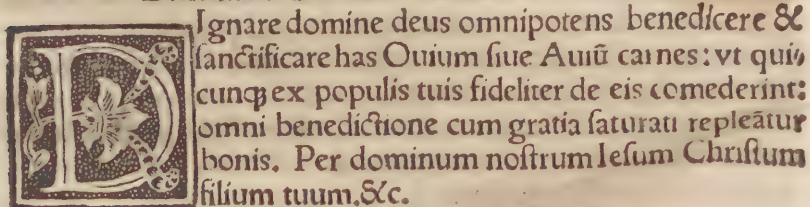 DIgnare domine deus omnipotens benedicere &
ſanctificare has Ouium ſiue Auiū carnes: vt qui⸗
cunqꝫ ex populis tuis fideliter de eis comederint:
omni benedictione cum gratia ſaturati repleātur
bonis. Per dominum noſtrum Ieſum Chriſtum
filium tuum,&c.